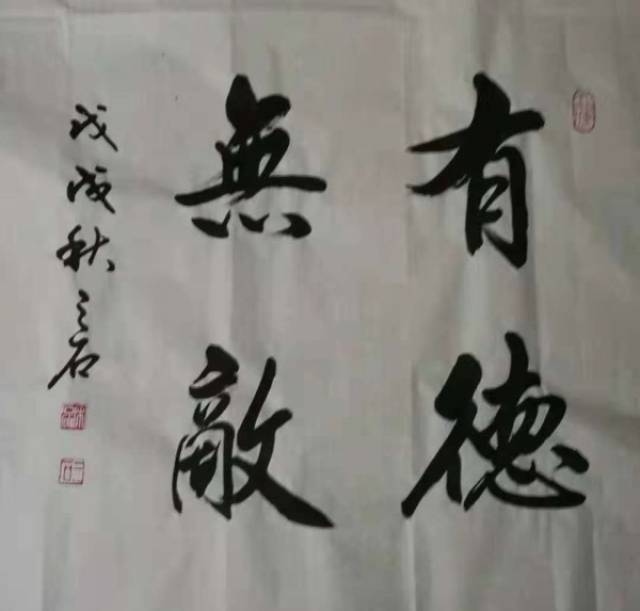 有德
無敵
戊戌秋之石